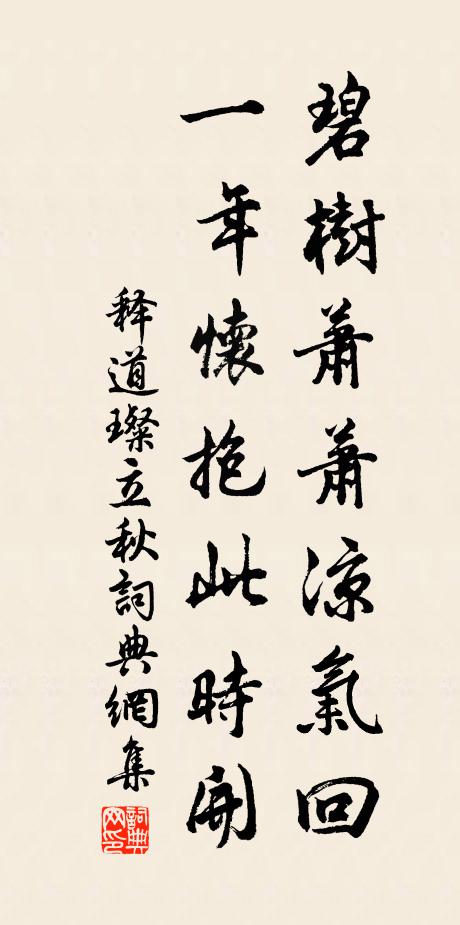 碧樹蕭蕭涼氣回
一年懷抱此時開
释道璨立秋詞典網集
詞典网印